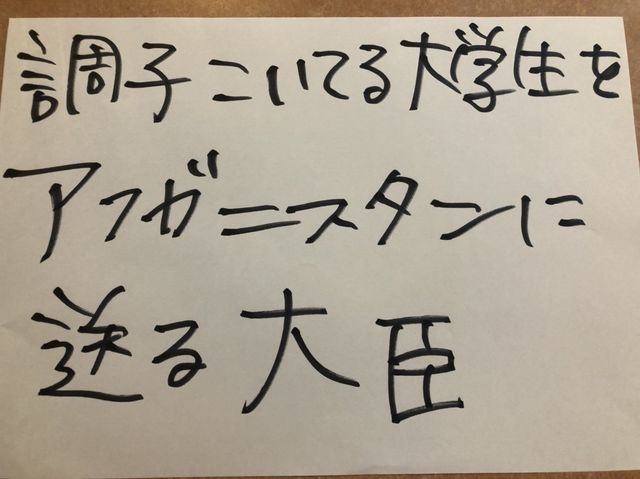 調子こいてる大学生を
アフガニスタンに
送る大臣